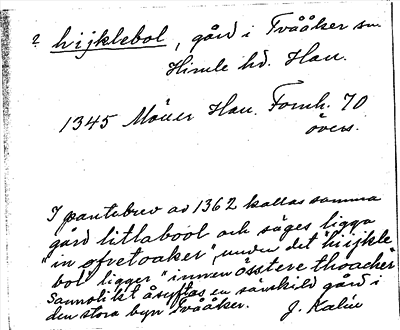 ? hijklebol, gård i Tvååker sn
Himle hd. Hau.
1345 Möller Hau. Fornh. 70
övers.
I pantebrev av 1362 kallas samma
gård litlabool och säges ligga
"in øfretoaker", under det "hiijkle
bol" ligger "innan østere thoacher"
Sannolikt åsyftas en särskild gård i
den stora byn Tvååker. J. Kalén